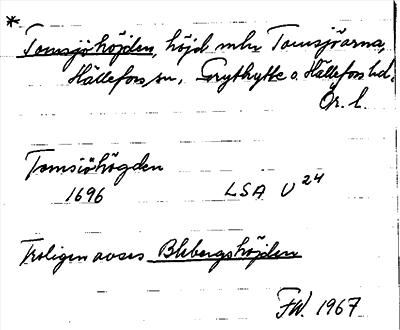 * Tomsjöhöjden, höjd mln Tomsjöarna,
Hällefors sn, Grythytte o. Hällefors hd.
Ör. l.
Tomsiöhögden
1696 LSA U 24
Troligen avses Blebergshöjden
FW. 1967